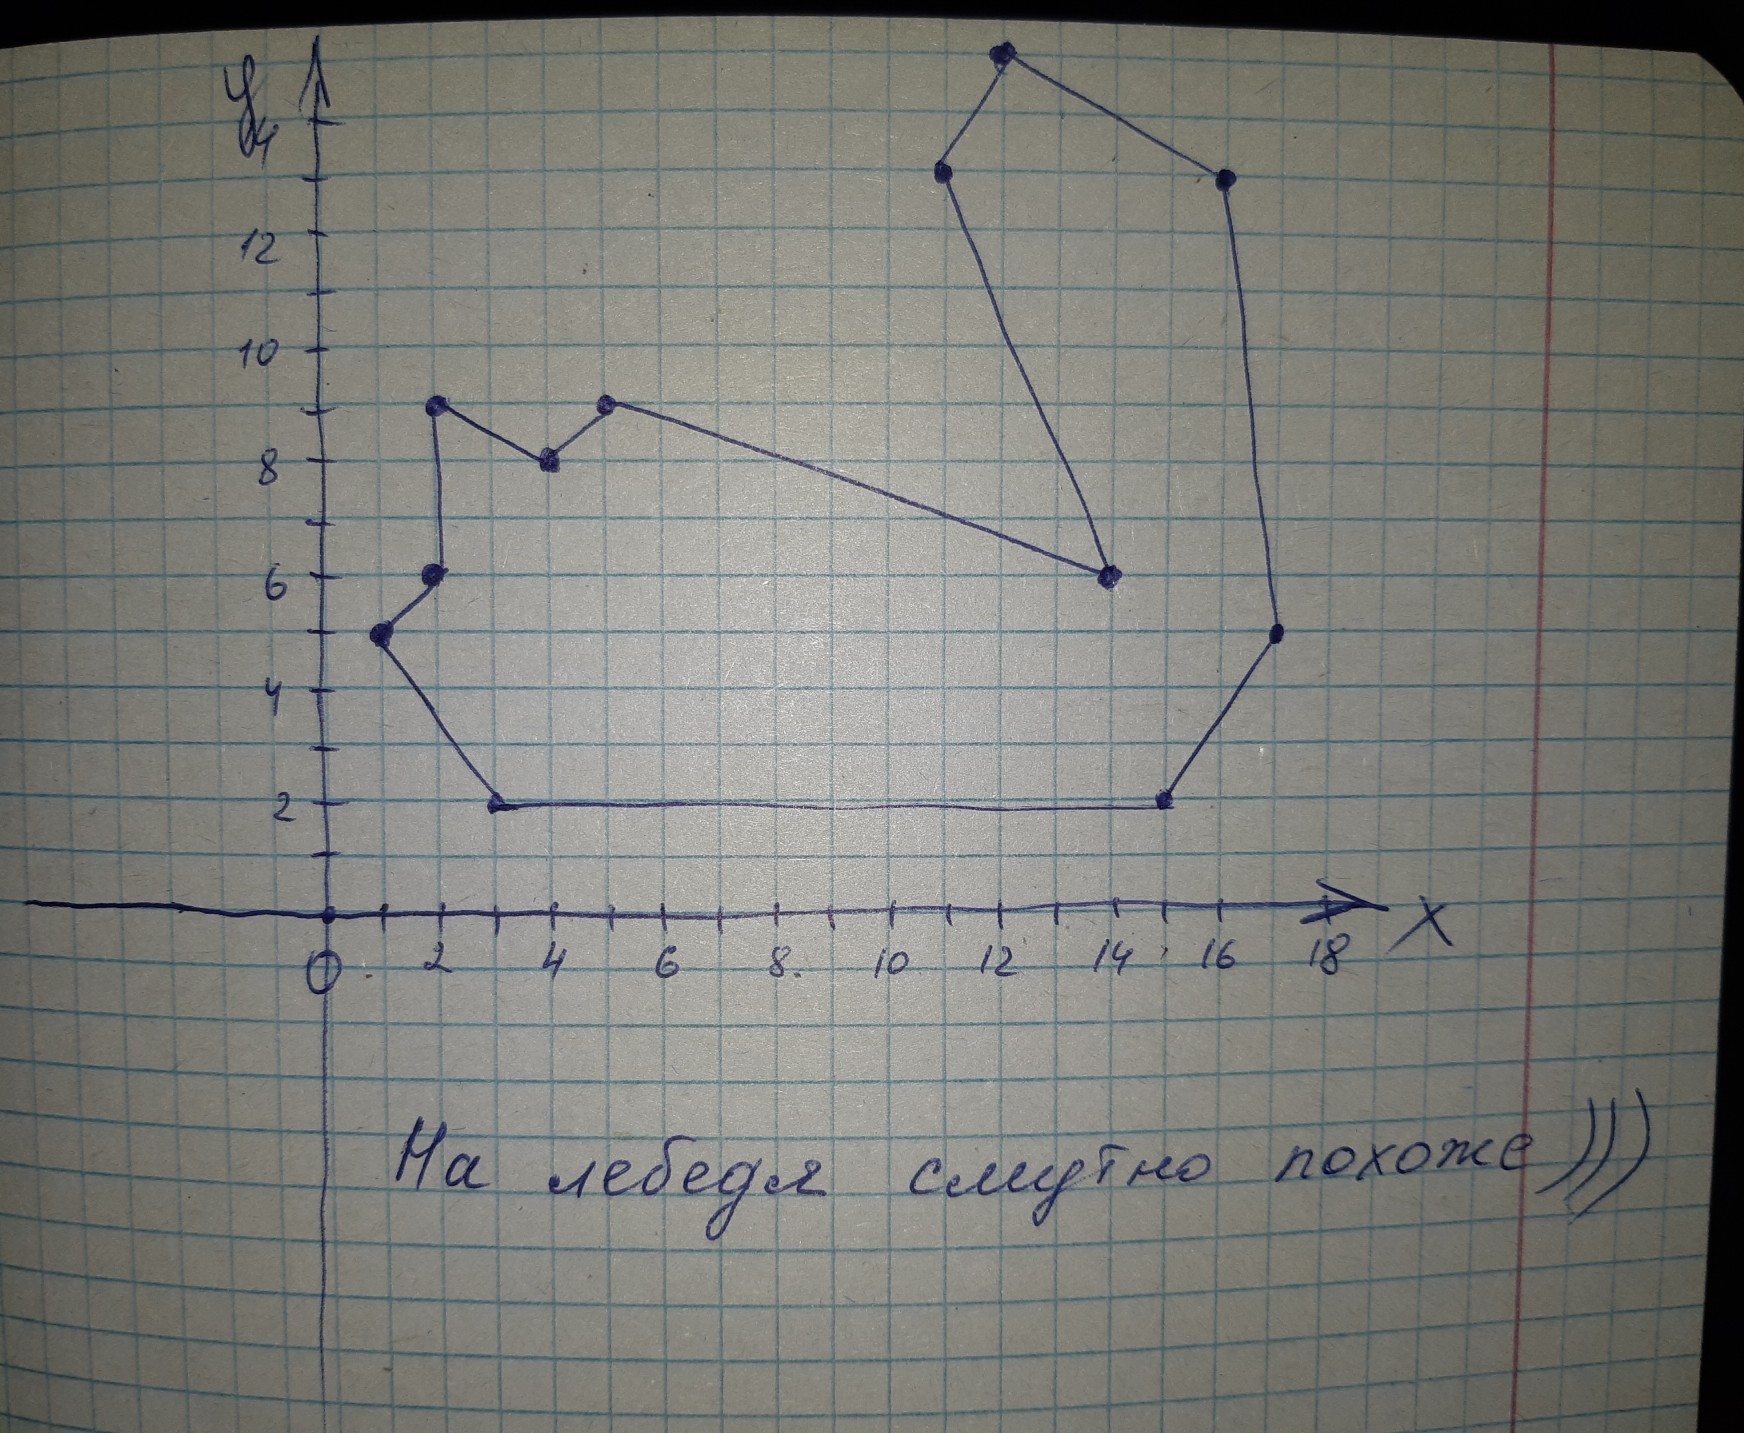 y
14
12
10
8
6
4
2
0 2 4 6 8 10 12 14 16 18 X
На лебедя смутно похоже)))